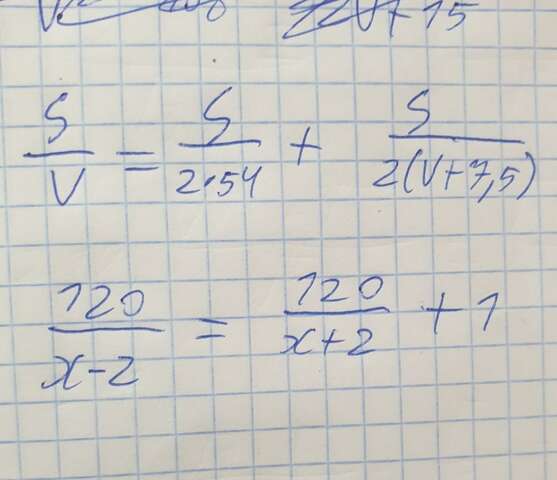 V+15
S/V = S/(2·54) + S/(2(V+7,5))
120/(x-2) = 120/(x+2) + 1